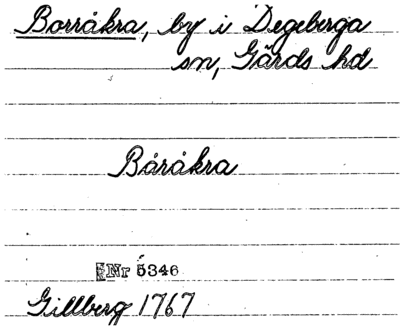 Borråkra, by i Degeberga
sn, Gärds hd
Båråkra
Nr 5346
Gillberg 1767